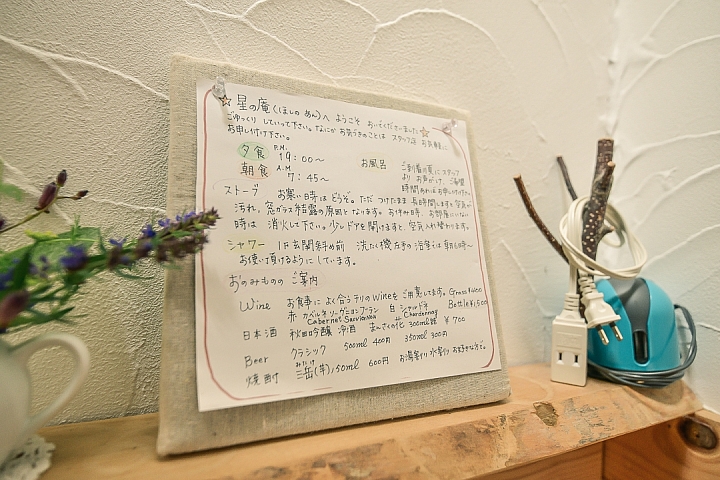 ☆星の庵(ほしの あん)へ ようこそ おいでくださいました☆
ごゆっくり していって下さい。なにか お気づきのことは スタッフ迄
お申し付け下さい。
夕食 P.M. 19:00〜
朝食 A.M 7:45〜
お風呂
ストーブ お寒い時は どうぞ。ただ つけたまま 長時間しますと 空気が
汚れ、窓ガラス 結露の原因となります。お休み時、お部屋にいない
時は 消火して下さい。少しドアを開けますと、空気入れ替わります。
シャワー 1F玄関斜め前 洗たく機 左手の浴室は 朝6時〜
お使い頂けるようにしています。
おのみものの ご案内
Wine お食事に よく合う チリのWineを ご用意してます。Grass ¥400
赤 カベルネ・ソーヴィニヨン・ブラン 白 シャルドネ Bottle ¥1,500
Cabernet Sauvignon Chardonnay
日本酒 秋田吟醸 冷酒 まんさくの花 300ml ¥700
Beer クラシック 500ml 400円 350ml 300円
みたけ
焼酎 三岳(芋) 50ml 600円 お湯割り 水割り お好きな方で。